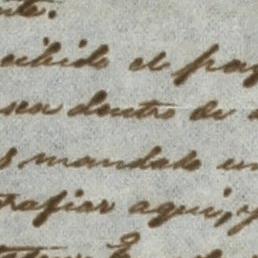 nte.
cibido el pag
sea dentro de
s mandado un
trafiar aqui, y